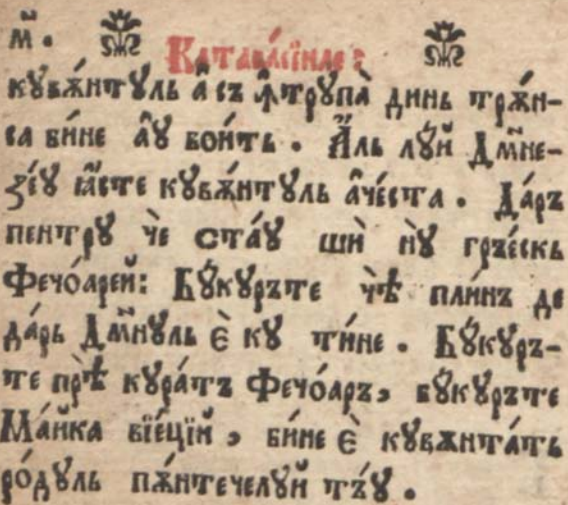 м҃. Катавасїиле:
кꙋвѫ́нтꙋль а҆ съ ꙟ҆трꙋпа̀ динь трѫ́н-
са би́не а҆ꙋ вои́ть. А҆́ль лꙋ́й Дм҃не-
зе́ꙋ ꙗ҆́сте кꙋвѫ́нтꙋль а҆че́ста. Да́ръ
пентрꙋ чѐ ста́ꙋ шѝ нꙋ̀ гръе́скь
Фечо́арей: Бꙋ́кꙋръте чѣ̀ пли́нъ де
да́рь Дм҃нꙋль є҆̀ кꙋ ти́не. Бꙋ́кꙋръ-
те прѣ̀ кꙋра́тъ Фечо́аръ, бꙋ́кꙋръте
Ма́йка вїе́цїй, би́не є҆̀ кꙋвѫнта́ть
ро́дꙋль пѫ́нтечелꙋй тъ́ꙋ.